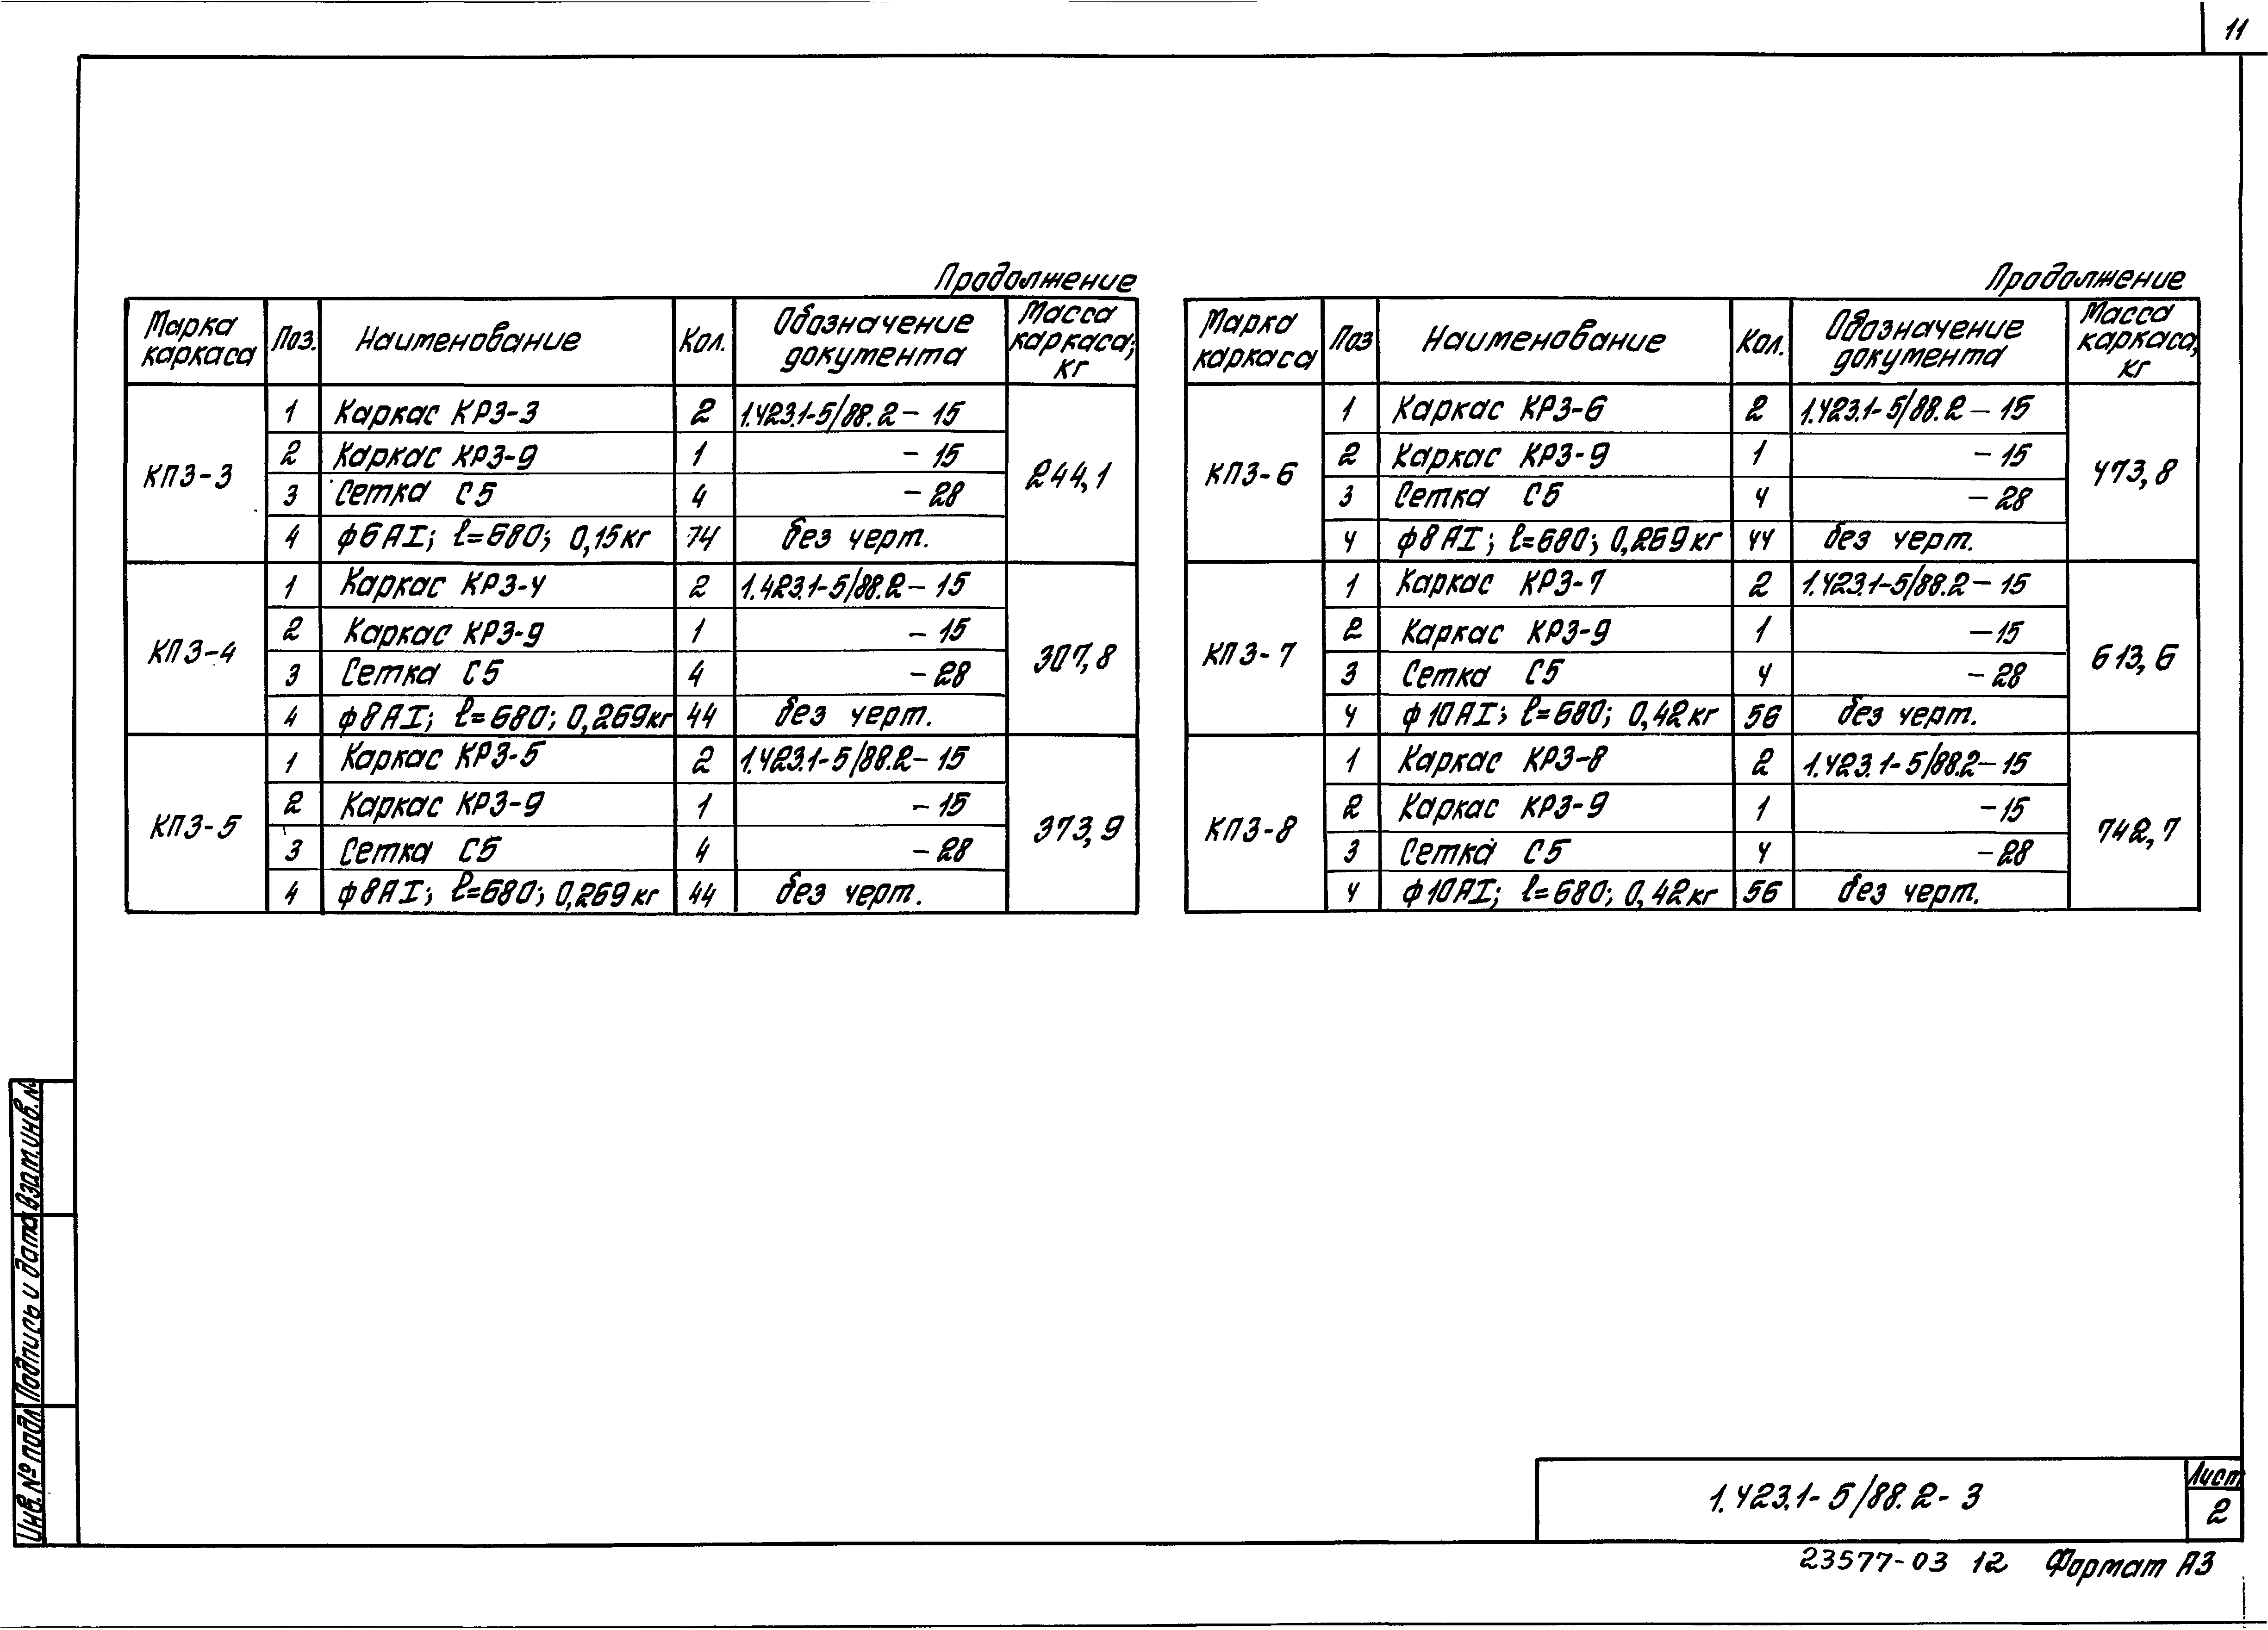 11
Продолжение
Марка каркаса | Поз. | Наименование | Кол. | Обозначение документа | Масса каркаса, кг
КП3-3 | 1 | Каркас КР3-3 | 2 | 1.423.1-5/88.2-15 | 244,1
2 | Каркас КР3-9 | 1 | -15
3 | Сетка С5 | 4 | -28
4 | ф6АI; l=680; 0,15кг | 74 | без черт.
КП3-4 | 1 | Каркас КР3-4 | 2 | 1.423.1-5/88.2-15 | 307,8
2 | Каркас КР3-9 | 1 | -15
3 | Сетка С5 | 4 | -28
4 | ф8АI; l=680; 0,269кг | 44 | без черт.
КП3-5 | 1 | Каркас КР3-5 | 2 | 1.423.1-5/88.2-15 | 373,9
2 | Каркас КР3-9 | 1 | -15
3 | Сетка С5 | 4 | -28
4 | ф8АI; l=680; 0,269кг | 44 | без черт.
Продолжение
Марка каркаса | Поз | Наименование | Кол. | Обозначение документа | Масса каркаса, кг
КП3-6 | 1 | Каркас КР3-6 | 2 | 1.423.1-5/88.2-15 | 473,8
2 | Каркас КР3-9 | 1 | -15
3 | Сетка С5 | 4 | -28
4 | ф8АI; l=680; 0,269кг | 44 | без черт.
КП3-7 | 1 | Каркас КР3-7 | 2 | 1.423.1-5/88.2-15 | 613,6
2 | Каркас КР3-9 | 1 | -15
3 | Сетка С5 | 4 | -28
4 | ф10АI; l=680; 0,42кг | 56 | без черт.
КП3-8 | 1 | Каркас КР3-8 | 2 | 1.423.1-5/88.2-15 | 742,7
2 | Каркас КР3-9 | 1 | -15
3 | Сетка С5 | 4 | -28
4 | ф10АI; l=680; 0,42кг | 56 | без черт.
Взам.инв.№
Подпись и дата
Инв.№ подл.
1.423.1-5/88.2-3
Лист
2
23577-03 12 Формат А3